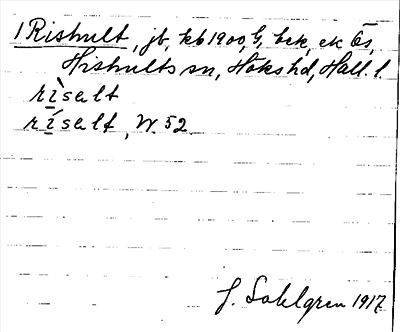 1 Rishult, jb, kb 1900, G, bek, ek Ös,
Hishults sn, Höks hd, Hall. l.
rìsalt
rísalt, W. 52
J. Sahlgren 1917